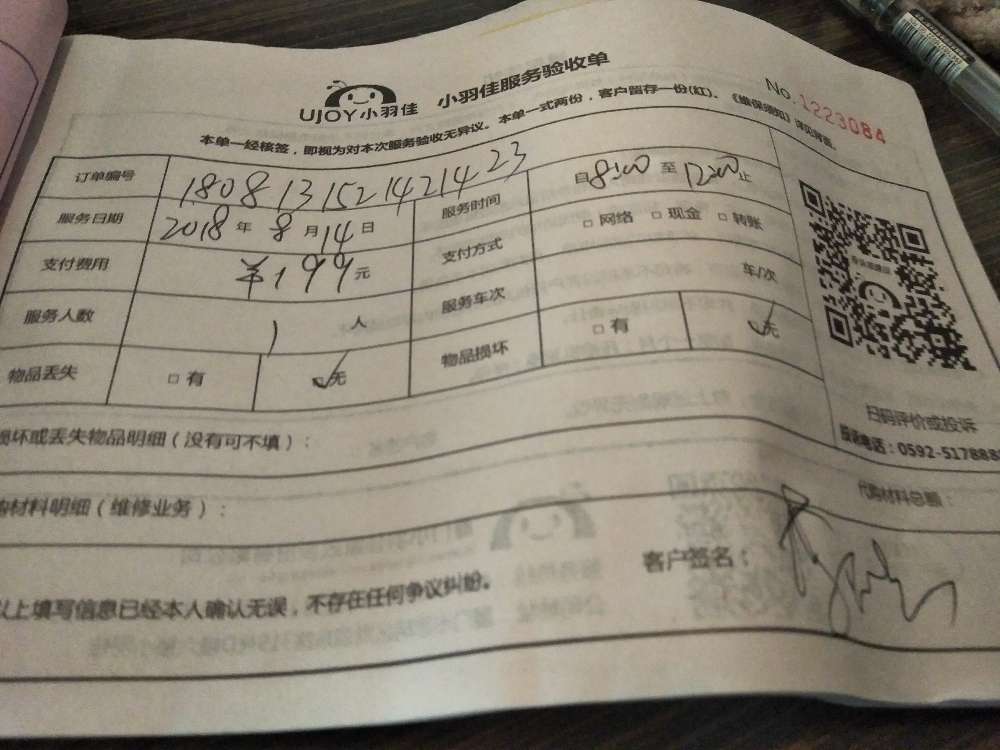 UJOY小羽佳 小羽佳服务验收单
No.1223084
本单一经核签，即视为对本次服务验收无异议。本单一式两份，客户留存一份(红)。《维保须知》详见背面。
订单编号 180813152142 1423 服务时间 自8:00至12:00止
服务日期 2018年8月14日 支付方式 □网络 □现金 □转账
支付费用 ￥199元 服务车次 车/次
服务人数 1人 物品损坏 □有 ☑无
物品丢失 □有 ☑无
扫码评价或投诉
投诉电话：0592-5178888
损坏或丢失物品明细（没有可不填）：
材料明细（维修业务）： 代购材料总额：
以上填写信息已经本人确认无误，不存在任何争议纠纷。 客户签名：